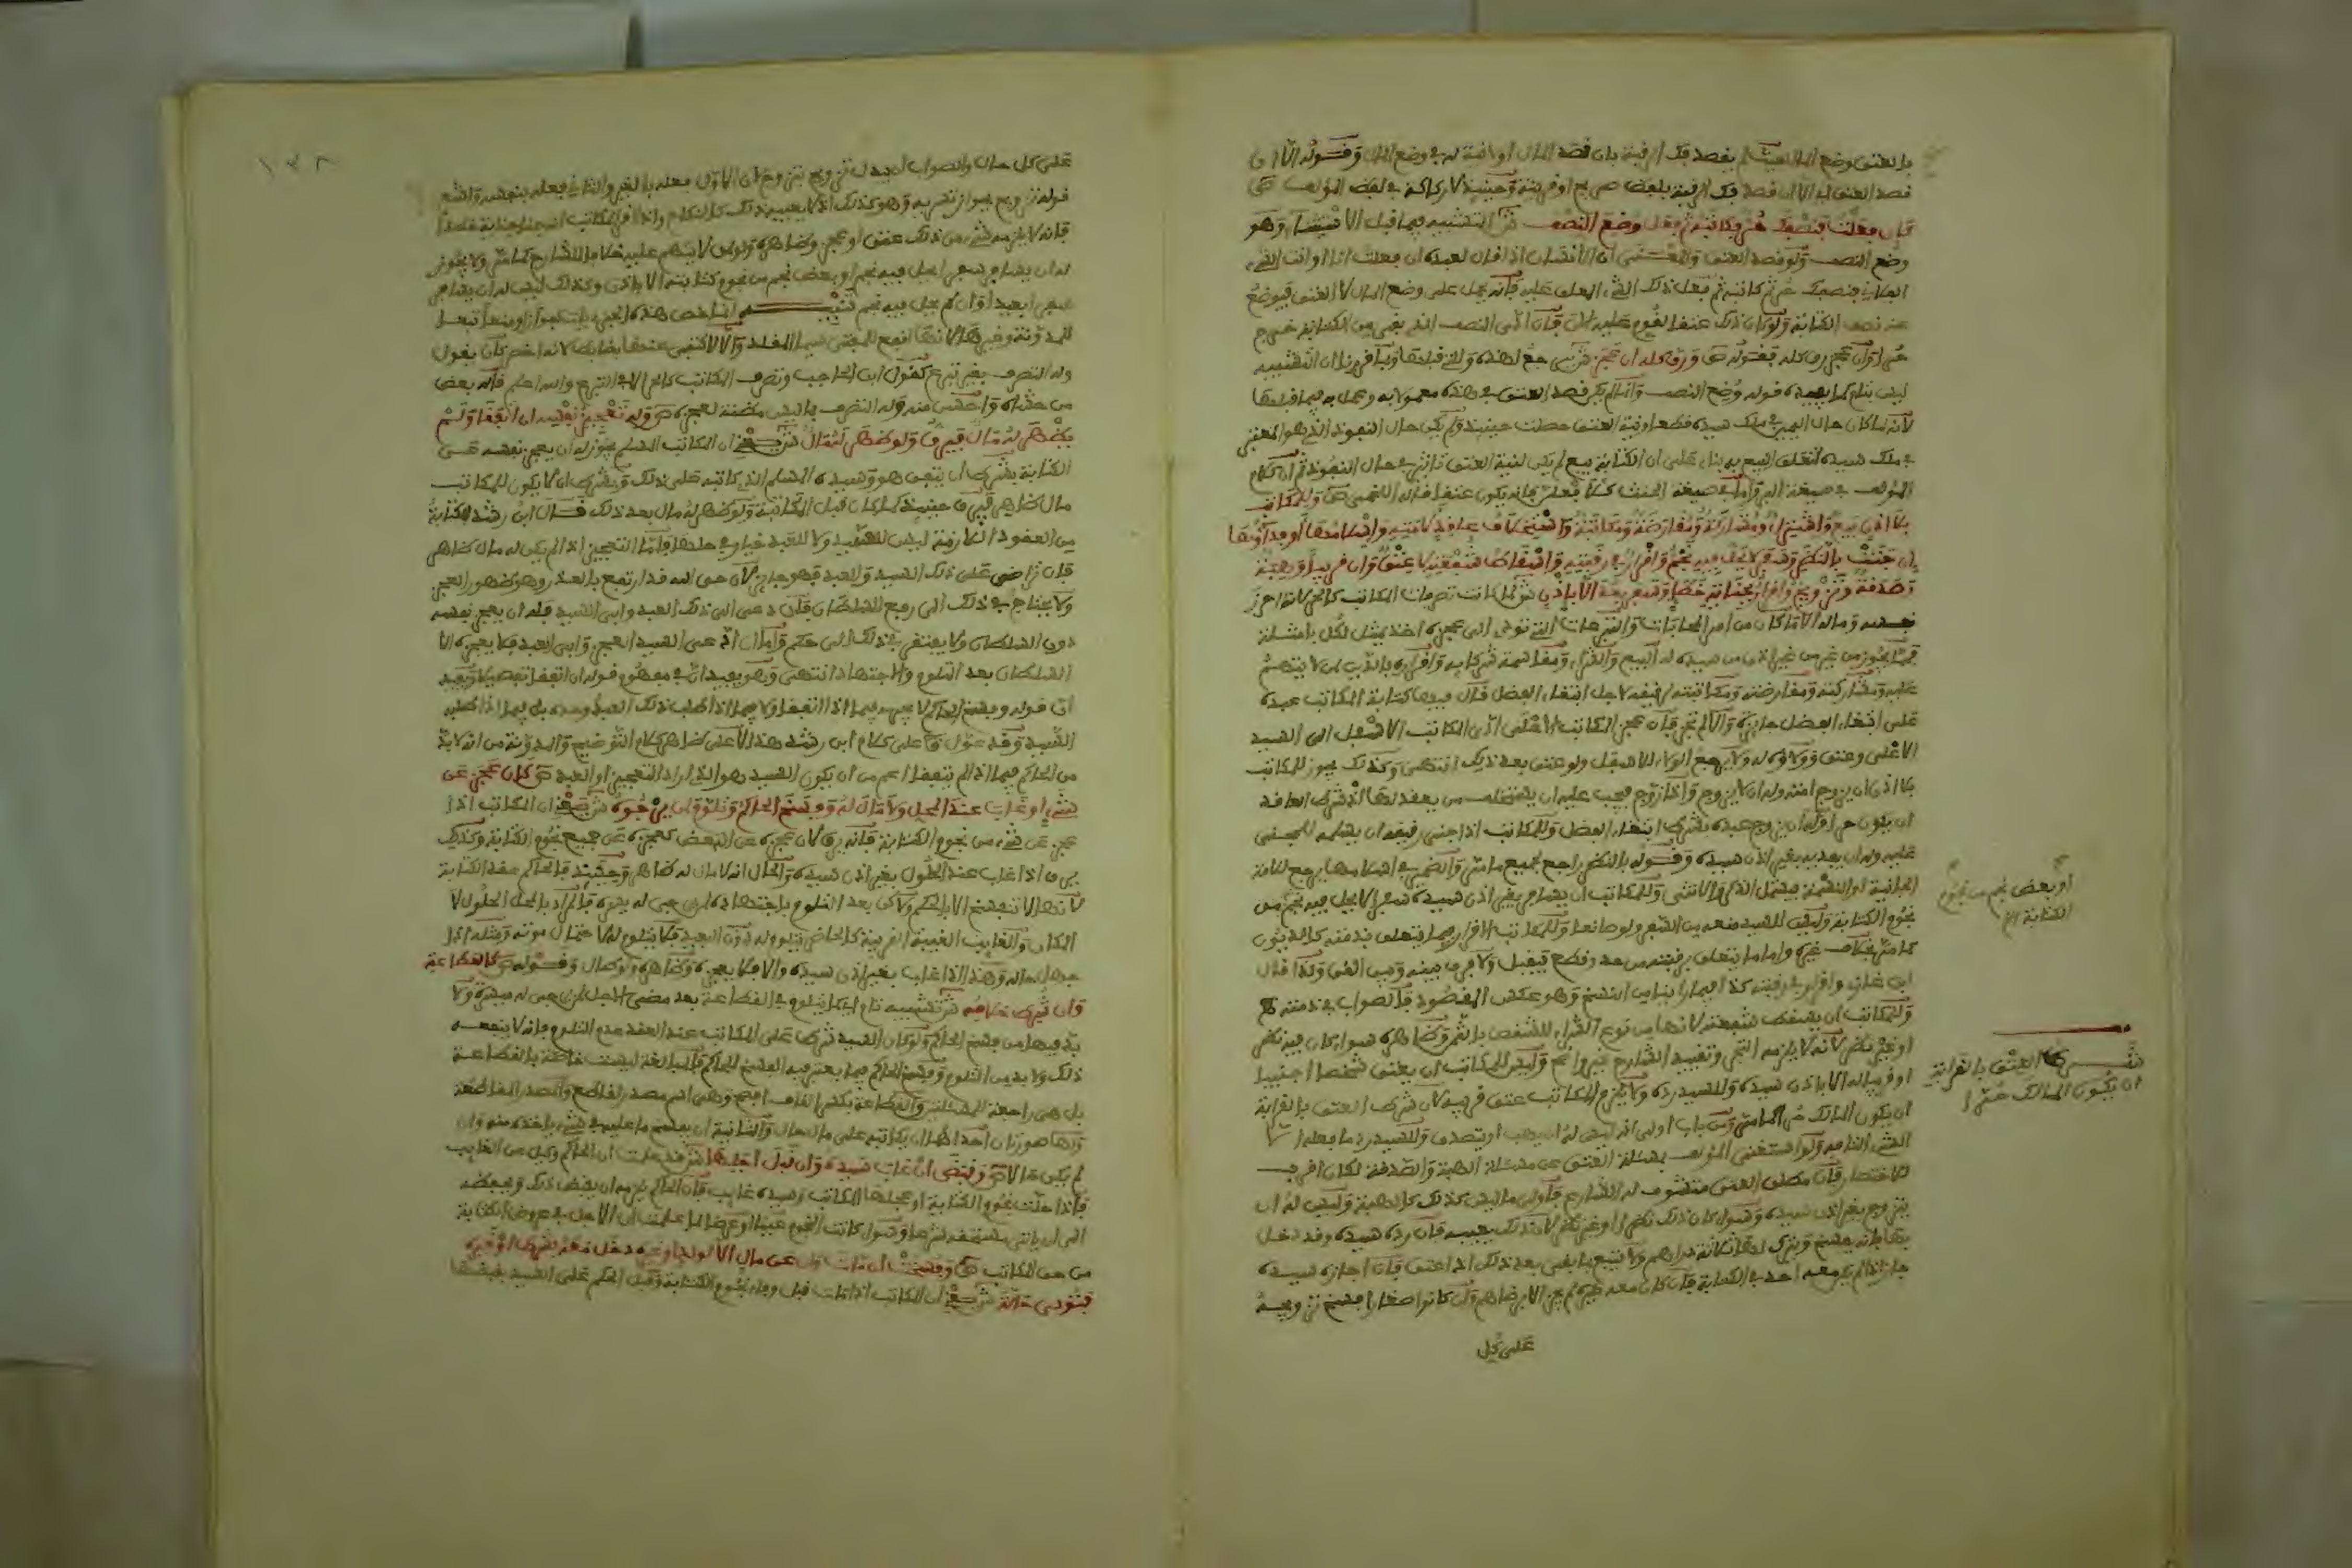 بالعتق وضع المال يقصد فك الرقبة بان قصد المال او لا نية له في وضع المال وقوله الا ان
قصد العتق اي الا ان قصد فك الرقبة بلفظ صريح او قرينة وحينئذ لا ركاكة في لفظ المؤلف ص
فان فعلت فنصفك حر فكاتبه ثم فعل وضع النصف ش التشبيه فيما قبل الاستثناء وهو
وضع النصف ولو قصد العتق والمعنى ان الانسان اذا قال لعبده ان فعلت انا او انت الشيء
الفلاني فنصفك حر ثم كاتبه ثم فعل ذلك الشيء المعلق عليه فانه يحمل على وضع المال لا العتق فيوضع
عنه نصف الكتابة ولو كان ذلك عتقا لقوم عليه فان ادى النصف الذي بقي من الكتابة خرج
حرا وان عجز رق كله فقوله ص ورق كله ان عجز ش يرجع لهذه وللتي قبلها وبما قررنا ان التشبيه
ليس بتام كما يفيده قوله وضع النصف وانما لم يكن قصد العتق في هذه معمولا به وعمل به فيما قبلها
لانه لما كان حال اليمين في ملك سيده قطعا ونية العتق حصلت حينئذ ولم يكن حال النفوذ الذي هو المعتبر
في ملك سيده لتعلق البيع به بناء على ان الكتابة بيع لم يكن لنية العتق تاثير في حال النفوذ ثم ان كلام
المؤلف في صيغة البر واما في صيغة الحنث فانه يكون عتقا قاله اللخمي ص وللمكاتب
بلا اذن بيع واشتراء ومشاركة ومقارضة ومكاتبة واستخلاف عاقد لامته واسلامها او فداؤها
ان جنت بالنظر وسفر لا يحل فيه نجم واقرار في رقبته واسقاط شفعته لا عتق وان قريبا وهبة
وصدقة وتزويج واقرار بجناية خطا وسفر بعد الا باذن ش لما كانت تصرفات المكاتب كالحر لانه احرز
نفسه وماله الا ما كان من امر المحابات والتبرعات التي تؤدي الى عجزه اخذ يمثل لكل بامثلة
فمما يجوز من غير اذن من سيده له البيع والشراء ومقاسمة شركائه واقراره بالدين لمن لا يتهم
عليه ومشاركته ومقارضته ومكاتبته رقيقه لاجل ابتغاء الفضل قال فيها كتابة المكاتب عبده
على ابتغاء الفضل جائزة والا لم تجز فان عجز المكاتب الاعلى ادى المكاتب الاسفل الى السيد
الاعلى وعتق وولاؤه له ولا يرجع الولاء للاسفل ولو عتق بعد ذلك انتهى وكذلك يجوز للمكاتب
بلا اذن ان يزوج امته وله ان لا يزوج واذا زوج فيجب عليه ان يستخلف من يعقد لها اذ شرط العاقد
ان يكون حرا وله ان يزوج عبده بشرط ابتغاء الفضل وللمكاتب اذا جنى رقيقه ان يسلمه للمجني
عليه وله ان يفديه بغير اذن سيده وقوله بالنظر راجع لجميع ما مر والضمير في اسلامها يرجع للامة
الجانية او النسمة فيشمل الذكر والانثى وللمكاتب ان يسافر بغير اذن سيده سفرا لا يحل فيه نجم من
نجوم الكتابة وليس للسيد منعه من السفر ولو صانعا وللمكاتب الاقرار فيما يتعلق بذمته كالديون
كما مر بخلاف غيره واما ما يتعلق برقبته من حد وقطع فيقبل ولا فرق بينه وبين القن وكذا قال
ابن غازي واقرار في رقبته كذا فيما راينا من النسخ وهو عكس المقصود فالصواب في ذمته
وللمكاتب ان يسقط شفعته لانها من نوع الشراء للشقص بالثمن وظاهره سواء كان فيه نظر
او غير نظر لانه لا يلزمه التجر وتقييد الشارح غير واضح وليس للمكاتب ان يعتق شخصا اجنبيا
او قريبا له الا باذن سيده وللسيد رده ولا يلزم المكاتب عتق قريبه لان شرط العتق بالقرابة
ان يكون المالك حرا كما مر ومن باب اولى انه ليس له ان يهب او يتصدق وللسيد رد ما فعله الا
الشيء التافه ولو استغنى المؤلف بمسئلة العتق عن مسئلة الهبة والصدقة لكان اقرب
للاختصار فان مطلق العتق متشوف له الشارع فاولى ما ليس كذلك كالهبة وليس له ان
يتزوج بغير اذن سيده وسواء كان ذلك نظرا او غير نظر لان ذلك يعيبه فان رده سيده وقد دخل
بها فانه يفسخ ويترك لها ثلاثة دراهم ولا تتبعه بما بقي بعد ذلك اذا عتق فان اجازه سيده
جاز اذا لم يكن معه احد في الكتابة فان كان معه غيره لم يجز الا برضاهم وان كانوا صغارا فسخ تزويجه
على كل
او بعض نجم من نجوم
الكتابة الخ
شرط العتق بالقرابة
ان يكون المالك حرا
١٣٨
على كل حال والصواب ابدال تزويج بتزوج لان الاول فعله بالغير والثاني فعله بنفسه
قوله تزويج يجوز تقريره وهو كذلك اذ لا يعيبه ذلك كالنكاح واذا اقر المكاتب
فانه لا يلزمه شيء من ذلك عتق او عجز وظاهره ولو من لا يتهم عليه خلافا للشارح كما مر ولا يجوز
له ان يسافر سفرا يحل فيه نجم او بعض نجم من نجوم كتابته الا باذن وكذلك ليس له ان يسافر
سفرا بعيدا وان لم يحل فيه نجم تنبيه انما نص هذه الجزئيات جوازا ومنعا تبعا
للمدونة وغيرها لانها انفع للمفتي سيما المقلد والا لاكتفى عنها بضابط لانه اخصر كان يقول
وله التصرف بغير تبرع كقول ابن الحاجب وتصرف المكاتب كالحر الا في التبرع والله اعلم قاله بعض
من حشاه واحسن منه وله التصرف بما ليس مظنة لعجزه ص وله تعجيز نفسه ان اتفقا ولم
يظهر له مال فيرق ولو ظهر له مال ش يعني ان المكاتب المسلم يجوز له ان يعجز نفسه عن
الكتابة بشرط ان يتفق هو وسيده المسلم الذي كاتبه على ذلك وبشرط ان لا يكون للمكاتب
مال ظاهر فيرق حينئذ كما كان قبل الكتابة ولو ظهر له مال بعد ذلك قال ابن رشد الكتابة
من العقود اللازمة ليس للسيد ولا للعبد خيار في حلها فاما التعجيز اذا لم يكن له مال ظاهر
فان تراضى على ذلك السيد والعبد فهو جائز لان حق الله قد ارتفع بالعذر وهو ظهور العجز
ولا يحتاج في ذلك الى رفع للسلطان فان دعى الى ذلك العبد وابى السيد فله ان يعجز نفسه
دون السلطان ولا يفتقر في ذلك الى حكم واما ان دعى السيد للعجز وابى العبد فلا يعجزه الا
السلطان بعد التلوم والاجتهاد انتهى وهو يفيد ان في مفهوم قوله ان اتفقا تفصيلا ويفيد
ان قوله وفسخ الحاكم لا يجري فيما اذا اتفقا ولا فيما اذا طلب ذلك العبد وحده بل فيما اذا طلبه
السيد وقد عول على كلام ابن رشد هذا لا على ظاهر كلام التوضيح والمدونة من انه لا بد
من الحاكم فيما اذا لم يتفقا اعم من ان يكون السيد هو الذي اراد التعجيز او العبد ص كان عجز عن
شيء او غاب عند المحل ولا مال له وفسخ الحاكم وتلوم لمن يرجوه ش يعني ان المكاتب اذا
عجز عن شيء من نجوم الكتابة فانه يرق لان عجزه عن البعض كعجزه عن جميع نجوم الكتابة وكذلك
يرق اذا غاب عند الحلول بغير اذن سيده والحال انه لا مال له ظاهر وحينئذ فالحاكم عقد الكتابة
لانها لا تنفسخ الا بالحكم ولكن بعد التلوم باجتهاده لمن يرجى له يسره فالمراد بالمحل الحلول لا
المكان والغائب الغيبة القريبة كالحاضر يتلوم له دون البعيد فلا يتلوم له لاحتمال موته ومثله اذا
جهل حاله وهذا اذا غاب بغير اذن سيده والا فلا يعجزه وظاهره ولو طال وقوله ص كالقطاعة
وان شرط خلافه ش تشبيه تام اي كما يتلوم في القطاعة بعد مضي الاجل لمن يرجى له ميسرة ولا
بد فيها من فسخ الحاكم ولو كان السيد شرط على المكاتب عند العقد عدم التلوم فانه لا ينفعه
ذلك ولا بد من التلوم وفسخ الحاكم فيما يعتبر فيه الفسخ للحاكم فالمبالغة ليست خاصة بالقطاعة
بل هي راجعة للمسئلتين والقطاعة بكسر القاف افصح وهي اسم مصدر لقاطع والمصدر المقاطعة
ولها صورتان احداهما ان يكاتبه على مال حال والثانية ان يفسخ ما عليه في شيء ياخذه منه وان
لم يكن حالا ص وقبض ان غاب سيده وان قبل اجلها ش قد علمت ان الحاكم وكيل عن الغائب
فاذا حلت نجوم الكتابة او عجلها المكاتب وسيده غائب فان الحاكم يلزمه ان يقبض ذلك ويبعثه
الى ان ياتي مستحقه شرعا وسواء كانت النجوم عينا او عرضا لما علمت ان الاجل في عروض الكتابة
من حق المكاتب ص وفسخت ان مات وان عن مال الا لولد او غيره دخل معه بشرط او غيره
فتؤدى حالة ش يعني ان المكاتب اذا مات قبل وفاء نجوم الكتابة وقبل الحكم على السيد بقبضها